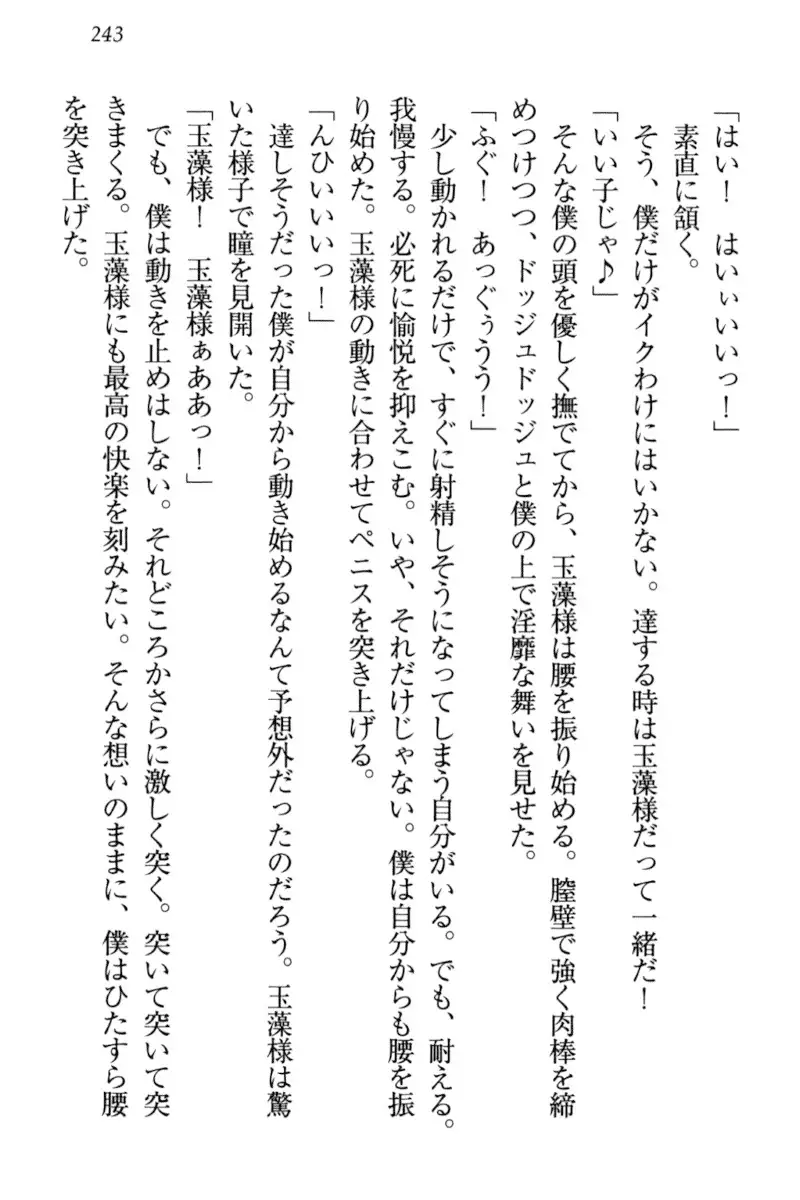 243
「はい！　はいぃいいっ！」
素直に頷く。
そう、僕だけがイクわけにはいかない。達する時は玉藻様だって一緒だ！
「いい子じゃ♪」
そんな僕の頭を優しく撫でてから、玉藻様は腰を振り始める。膣壁で強く肉棒を締
めつけつつ、ドッジュドッジュと僕の上で淫靡な舞いを見せた。
「ふぐ！　あっぐぅうう！」
少し動かれるだけで、すぐに射精しそうになってしまう自分がいる。でも、耐える。
我慢する。必死に愉悦を抑えこむ。いや、それだけじゃない。僕は自分からも腰を振
り始めた。玉藻様の動きに合わせてペニスを突き上げる。
「んひいいいっ！」
達しそうだった僕が自分から動き始めるなんて予想外だったのだろう。玉藻様は驚
いた様子で瞳を見開いた。
「玉藻様！　玉藻様ぁああっ！」
でも、僕は動きを止めはしない。それどころかさらに激しく突く。突いて突いて突
きまくる。玉藻様にも最高の快楽を刻みたい。そんな想いのままに、僕はひたすら腰
を突き上げた。